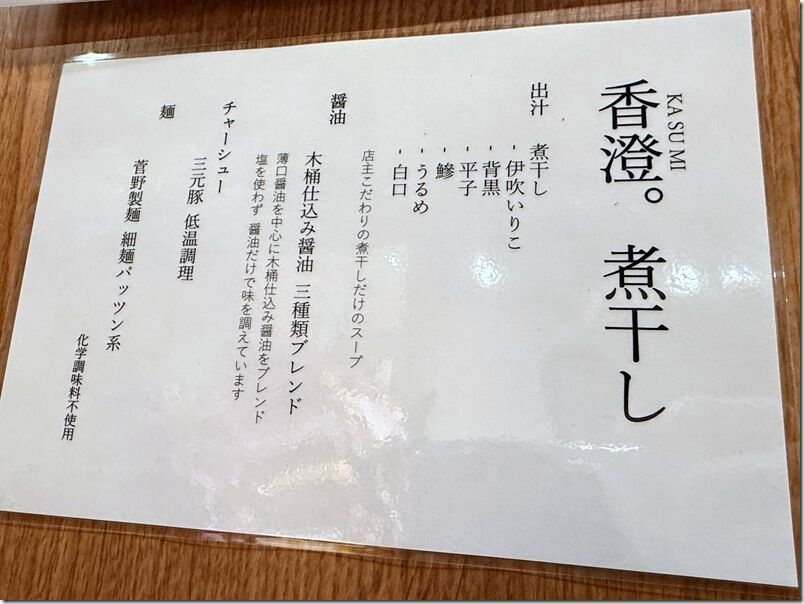 KASUMI
香澄。 煮干し
出汁 煮干し
- 伊吹いりこ
- 背黒
- 平子
- 鯵
- うるめ
- 白口
店主こだわりの煮干しだけのスープ
醤油
木桶仕込み醤油 三種類ブレンド
薄口醤油を中心に木桶仕込み醤油をブレンド
塩を使わず 醤油だけで味を調えています
チャーシュー
三元豚 低温調理
麺
菅野製麺 細麺パッツン系
化学調味料不使用